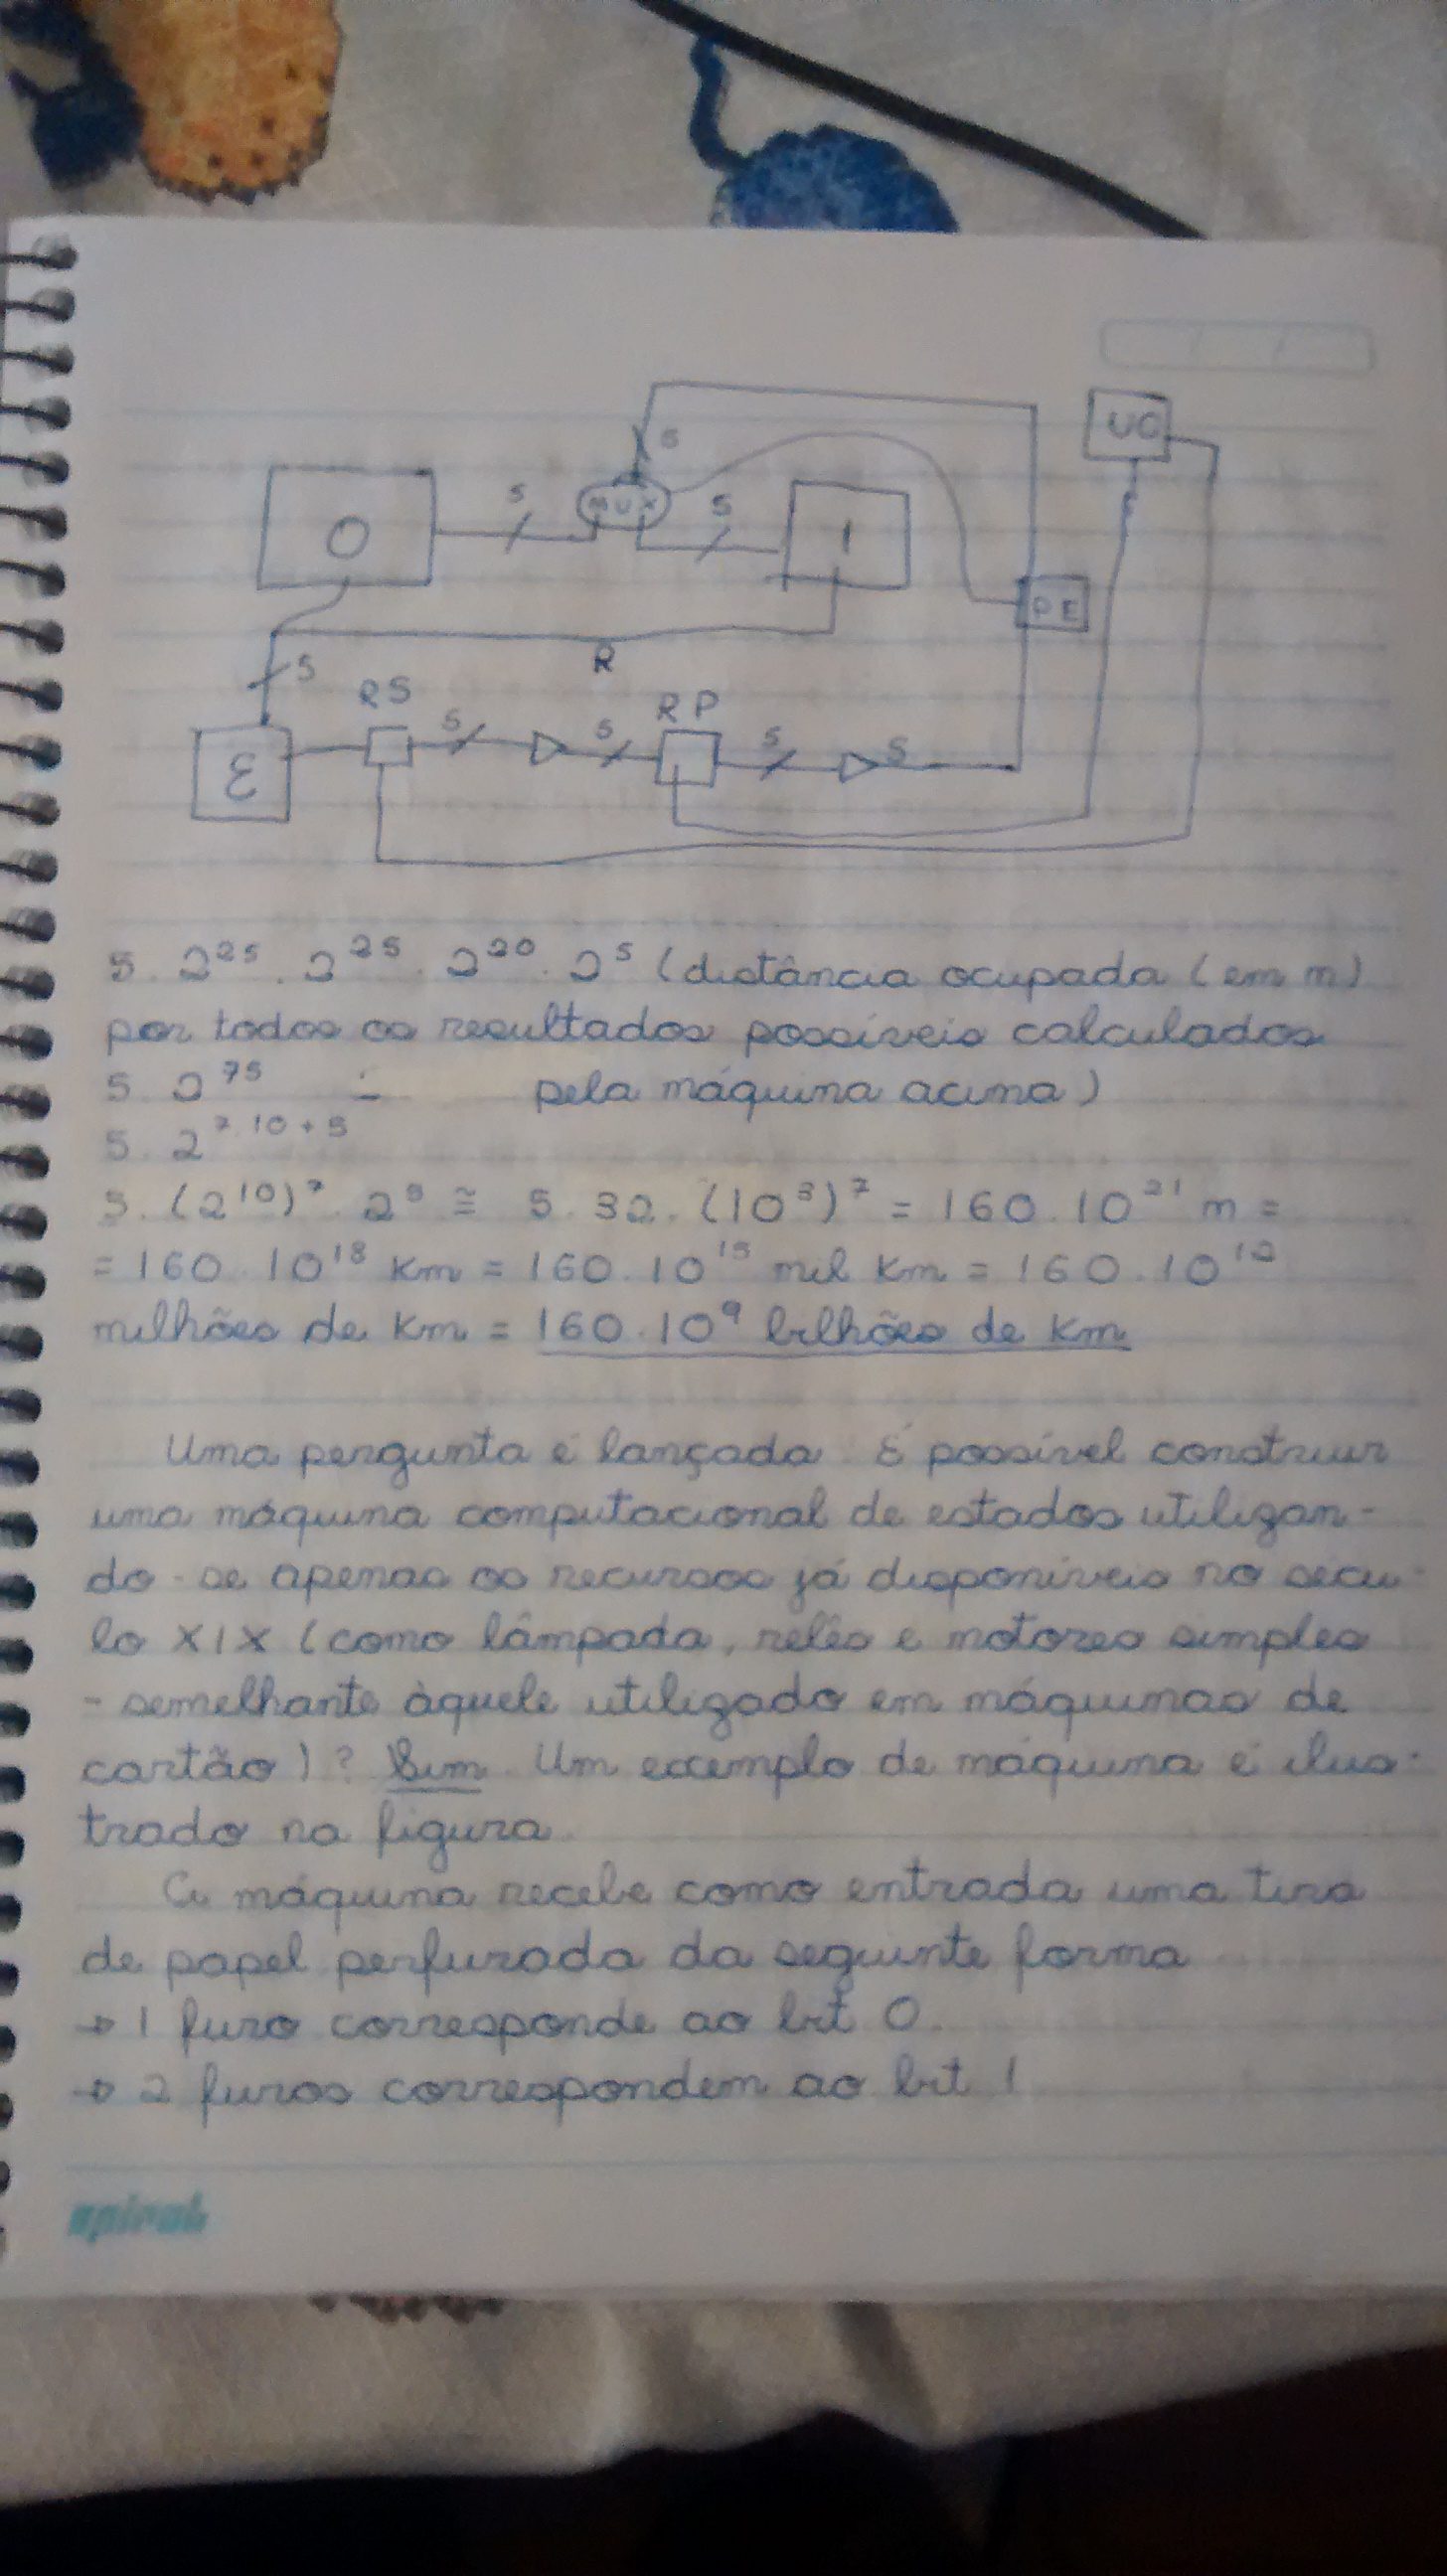 UC
5
MUX
5
5
O
1
PE
R
5
RS
RP
5
5
5
5
E
5. 2^25 . 2^25 . 2^20 . 2^5 (distância ocupada (em m)
por todos os resultados possíveis calculados
5. 2^75 = pela máquina acima)
5. 2^7.10+5
5. (2^10)^7 . 2^5 ≅ 5. 32. (10^3)^7 = 160. 10^21 m =
= 160. 10^18 km = 160. 10^15 mil km = 160. 10^12
milhões de km = 160. 10^9 bilhões de km
Uma pergunta é lançada. É possível construir
uma máquina computacional de estados utilizan-
do-se apenas os recursos já disponíveis no sécu-
lo XIX (como lâmpada, relês e motores simples
- semelhante àquele utilizado em máquinas de
cartão)? Sim. Um exemplo de máquina é ilus-
trado na figura.
A máquina recebe como entrada uma tira
de papel perfurada da seguinte forma
→ 1 furo corresponde ao bit 0.
→ 2 furos correspondem ao bit 1
spiral